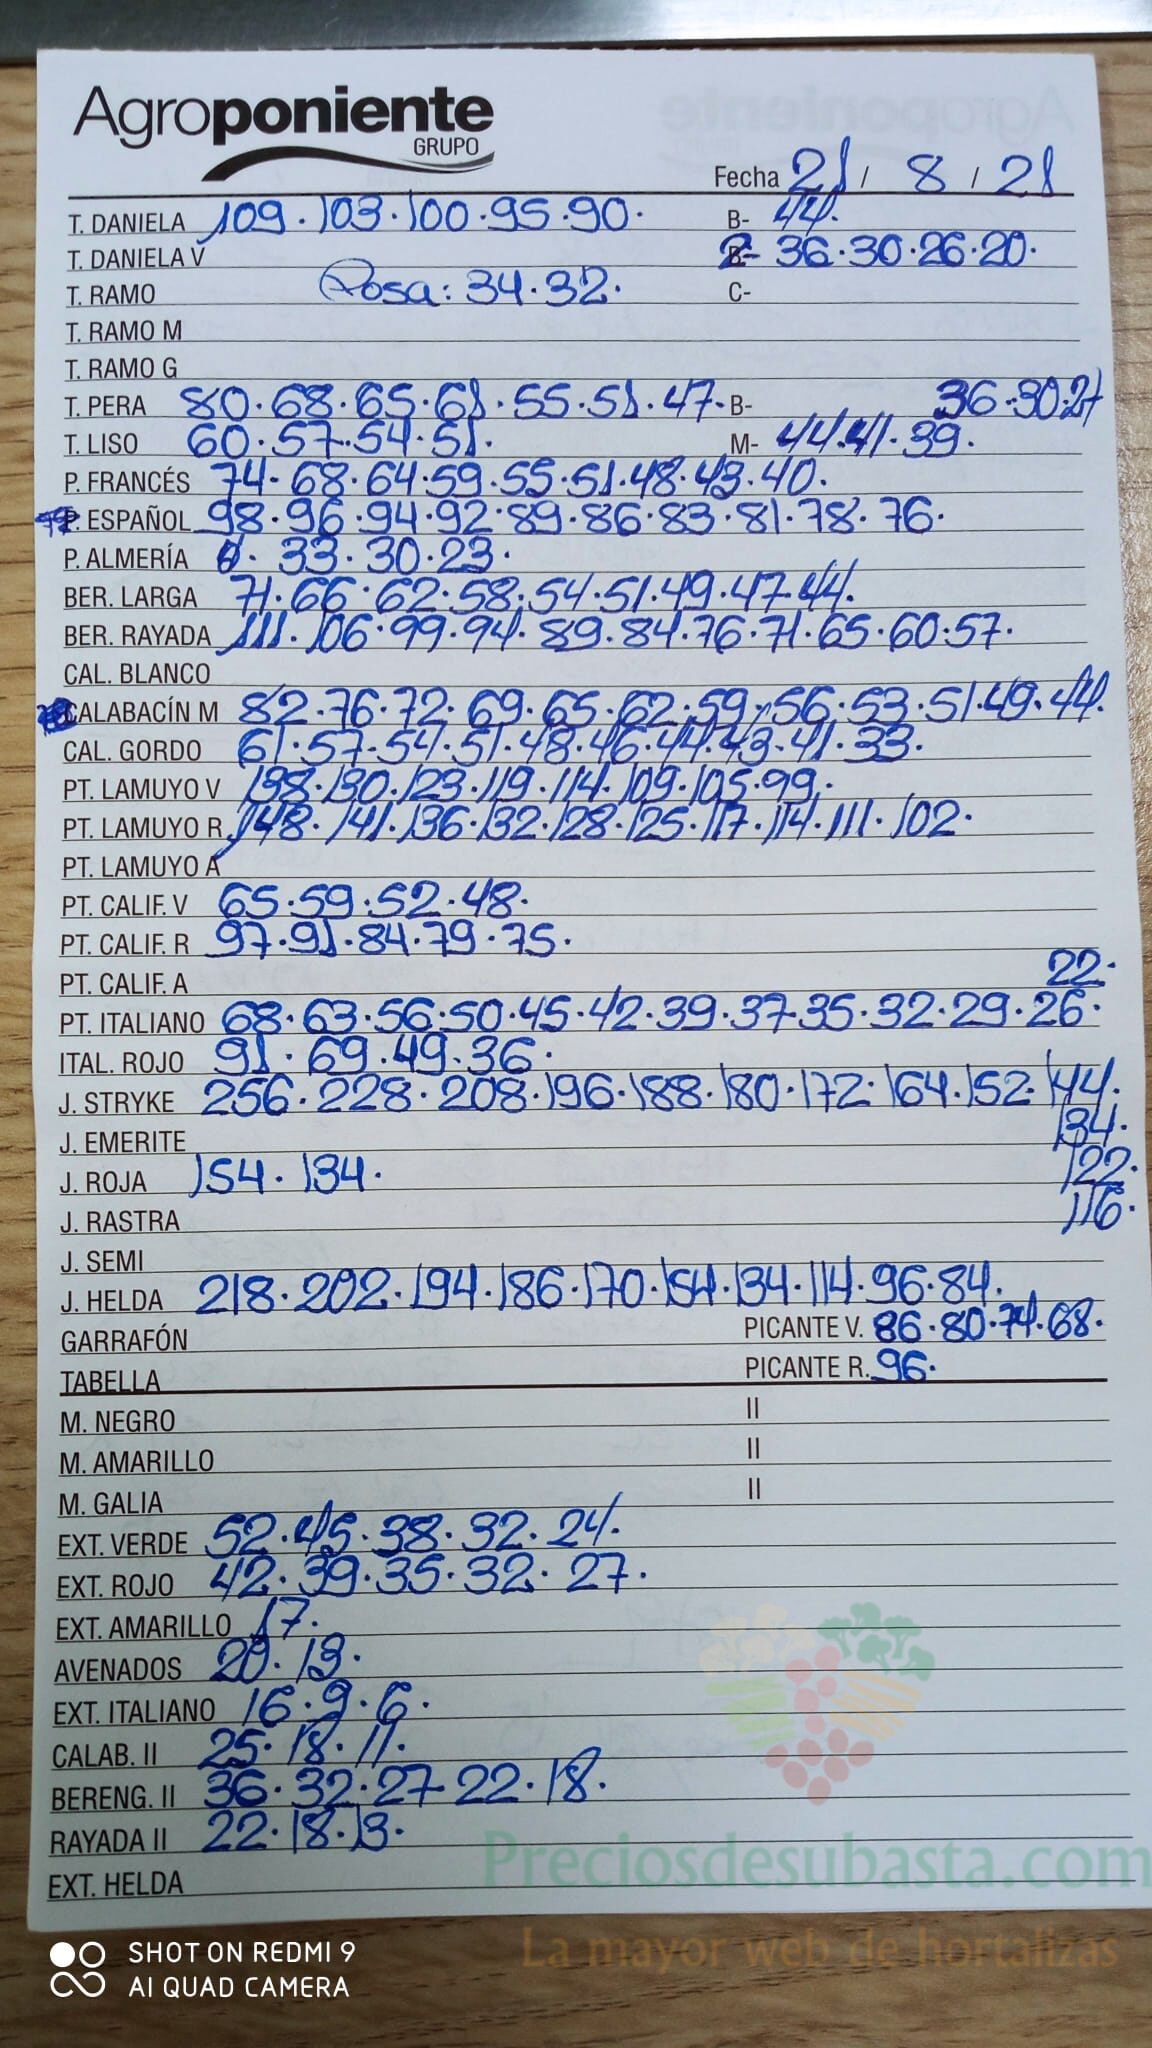 Agroponiente
GRUPO
Fecha 21 / 8 / 21
T. DANIELA 109 · 103 · 100 · 95 · 90 · B- 44 ·
T. DANIELA V 36 · 30 · 26 · 20 ·
T. RAMO Rosa: 34 · 32 · C-
T. RAMO M
T. RAMO G
T. PERA 80 · 68 · 65 · 61 · 55 · 51 · 47 · B- 36 · 30 · 27
T. LISO 60 · 57 · 54 · 51 · M- 44 · 41 · 39 ·
P. FRANCÉS 74 · 68 · 64 · 59 · 55 · 51 · 48 · 43 · 40 ·
P. ESPAÑOL 98 · 96 · 94 · 92 · 89 · 86 · 83 · 81 · 78 · 76 ·
P. ALMERÍA · 33 · 30 · 23 ·
BER. LARGA 71 · 66 · 62 · 58 · 54 · 51 · 49 · 47 · 44 ·
BER. RAYADA 111 · 106 · 99 · 94 · 89 · 84 · 76 · 71 · 65 · 60 · 57 ·
CAL. BLANCO
CALABACÍN M 82 · 76 · 72 · 69 · 65 · 62 · 59 · 56 · 53 · 51 · 49 · 44 ·
CAL. GORDO 61 · 57 · 54 · 51 · 48 · 46 · 44 · 43 · 41 · 33 ·
PT. LAMUYO V 138 · 130 · 123 · 119 · 114 · 109 · 105 · 99 ·
PT. LAMUYO R 148 · 141 · 136 · 132 · 128 · 125 · 117 · 114 · 111 · 102 ·
PT. LAMUYO A
PT. CALIF. V 65 · 59 · 52 · 48 ·
PT. CALIF. R 97 · 91 · 84 · 79 · 75 ·
PT. CALIF. A 22 ·
PT. ITALIANO 68 · 63 · 56 · 50 · 45 · 42 · 39 · 37 · 35 · 32 · 29 · 26 ·
ITAL. ROJO 91 · 69 · 49 · 36 ·
J. STRYKE 256 · 228 · 208 · 196 · 188 · 180 · 172 · 164 · 152 · 144 ·
J. EMERITE 134 ·
J. ROJA 154 · 134 · 122 ·
J. RASTRA 116 ·
J. SEMI
J. HELDA 218 · 202 · 194 · 186 · 170 · 154 · 134 · 114 · 96 · 84 ·
GARRAFÓN PICANTE V. 86 · 80 · 74 · 68 ·
TABELLA PICANTE R. 96 ·
M. NEGRO II
M. AMARILLO II
M. GALIA II
EXT. VERDE 52 · 45 · 38 · 32 · 24 ·
EXT. ROJO 42 · 39 · 35 · 32 · 27 ·
EXT. AMARILLO 17 ·
AVENADOS 20 · 13 ·
EXT. ITALIANO 16 · 9 · 6 ·
CALAB. II 25 · 18 · 11 ·
BERENG. II 36 · 32 · 27 · 22 · 18 ·
RAYADA II 22 · 18 · 13 ·
EXT. HELDA
Preciosdesubasta.com
La mayor web de hortalizas
SHOT ON REDMI 9
AI QUAD CAMERA